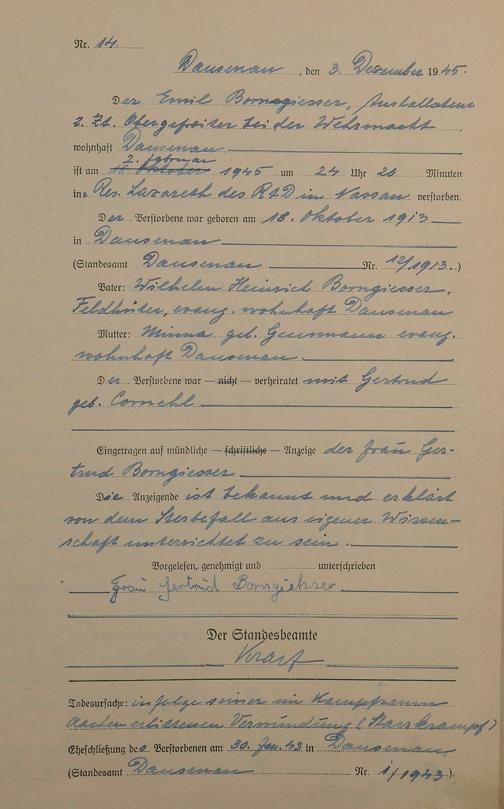 Nr. 14.
Dausenau, den 3. Dezember 1945.
Der Emil Borngiesser, Installateur
z. Zt. Obergefreiter bei der Wehrmacht
wohnhaft Dausenau
2. Februar
ist am 18. Oktober 1945 um 24 Uhr 20 Minuten
in Res. Lazareth des RAD in Nassau verstorben.
Der Verstorbene war geboren am 18. Oktober 1913
in Dausenau
(Standesamt Dausenau Nr. 12/1913.)
Vater: Wilhelm Heinrich Borngiesser,
Feldhüter, evang. wohnhaft Dausenau
Mutter: Minna geb. Geusmann evang.
wohnhaft Dausenau.
Der Verstorbene war — nicht — verheiratet mit Gertrud
geb. Cornehl
Eingetragen auf mündliche — schriftliche — Anzeige der Frau Ger-
trud Borngiesser.
Die Anzeigende ist bekannt und erklärt
von dem Sterbefall aus eigener Wissen-
schaft unterrichtet zu sein.
Vorgelesen, genehmigt und unterschrieben
Frau Gertrud Borngießer
Der Standesbeamte
Todesursache: infolge seiner im Kampfraum
erlittenen Verwundung (Starrkrampf)
Eheschließung des Verstorbenen am 30. Jan. 43 in Dausenau
(Standesamt Dausenau Nr. 1/1943.)